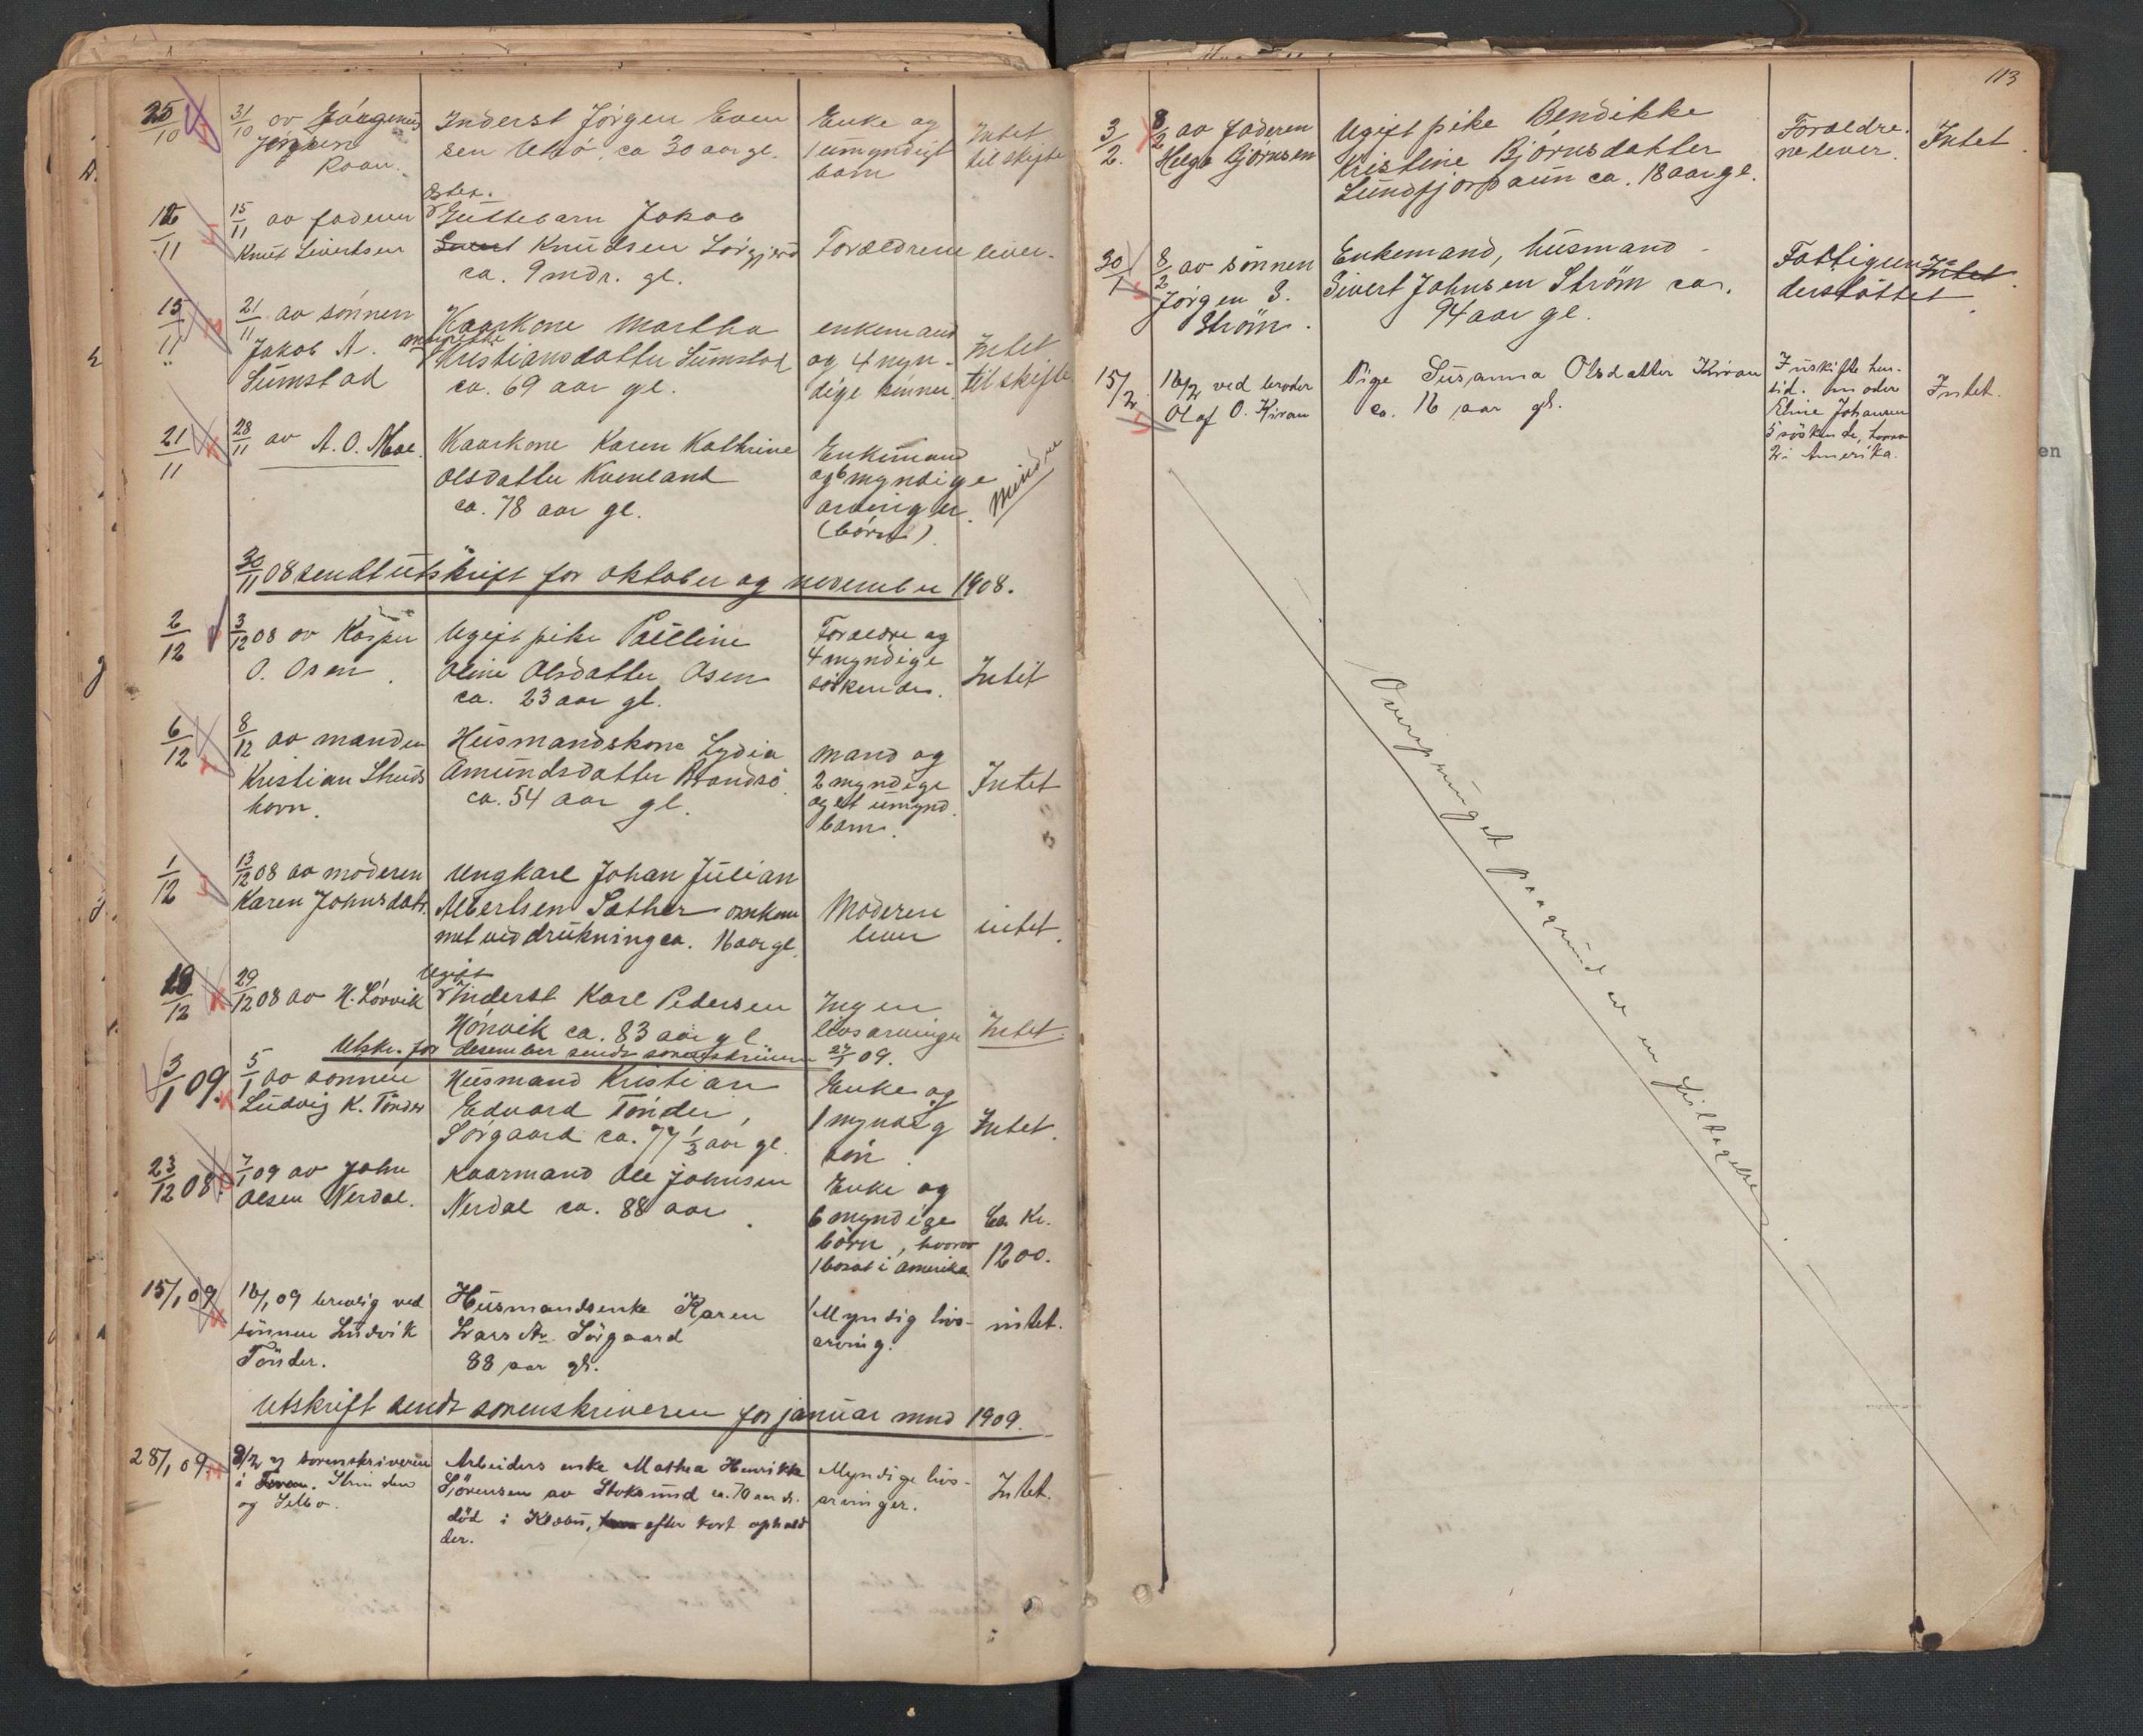 25/10 31/10 av Jørgen Inderst Jørgen Even Enke og Intet
sen Utsö, ca 30 aar gl. 1 umyndigt til skifte
Roan. barn
12/11 15/11 av faderen Guttebarn Jakob
Knut Sivertsen Knudsen Sörgjerd Forældrene lever.
ca. 9 mdr. gl.
15/11 21/11 av sönnen Kaarkone Martha enkemand Intet
Jakob A. Kristiansdatter Sumstad og 4 myn- til skifte
Sumstad ca. 69 aar gl. dige sönner.
21/11 28/11 av A. O. Moe. Kaarkone Karen Kathrine Enkemand
Olsdatter Kvenland og 6 myndige
ca. 78 aar gl. arvinger. Mindre
(börn).
30/11 08 sendt utskrift for oktober og november 1908.
2/12 3/12 08 av Kasper Ugift pike Pauline Forældre og
O. Osen. Oline Olsdatter Osen 4 myndige Intet
ca. 23 aar gl. söskende.
6/12 8/12 av manden Husmandskone Lydia mand og
Kristian Amundsdatter Brandsö 2 myndige Intet
horn. ca. 54 aar gl. og et umynd.
barn.
1/12 13/12 08 av moderen Ungkarl Johan Julian
Karen Johnsdatr. Albertsen Sæther omkom Moderen intet.
met ved drukning ca. 16 aar gl. lever
Ugift
18/12 29/12 08 av N. Lörvik Inderst Karl Pedersen Ingen
Hönvik ca. 83 aar gl. livsarvinger Intet.
Utskr. for desember sendt sorenskriveren 27/1 09.
3/1 09. 5/1 av sönnen Husmand Kristian Enke og
Ludvig K. Tönder Edvard Tönder, 1 myndig Intet.
Sörgaard ca. 77 1/2 aar gl. sön.
23/12 08. 7/1 09 av John Kaarmand Ole Johnsen Enke og
Olsen Nerdal. Nerdal ca. 88 aar. 6 myndige Ca. Kr.
börn, hvorav 1200.
1 bosat i Amerika.
15/1 09 16/1 09 brevlig ved Husmandsenke Karen 1 Myndig livs- intet.
sönnen Ludvik Lars Sörgaard arving.
Tönder. 88 aar gl.
Utskrift sendt sorenskriveren for januar mnd 1909.
28/1 09. 9/2 sorenskriveren Arbeiders enke Mathea Henrikke Myndige livs- Intet.
i Strinden Sörensen av Stoksund ca. 70 aar gl. arvinger.
og Selbo. död i Klæbu, efter kort ophold
der.
113
3/2. 8/2 av faderen Ugift pike Bendikke Forældre- Intet.
Helge Björnsen Kristine Björnsdatter ne lever.
Sundfjordaun ca. 18 aar gl.
30/1 8/2 av sönnen Enkemand, husmand Fattigun- Intet.
Jörgen S. Sivert Johnsen Ström ca. derstöttet.
Ström. 94 aar gl.
15/2. 16/2 ved broder Pige Susanna Olsdatter Kiran I uskifte hen-
Olaf O. Kiran ca. 16 aar gl. sid. moder Intet.
Eline Johansen
5 söskende, hvorav
2 i Amerika.
Oversprunget paa grund av en feiltagelse.